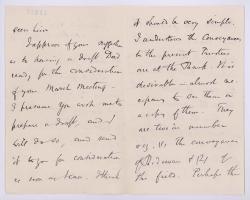 seen him
I approve of your suggestion
as to having a draft Deed
ready for the consideration
of your March Meeting -
I presume you wish me to
prepare a draft, and I
will do so, and send
it to you for consideration
as soon as I can. I think
it should be very simple.
I understand the Conveyances
to the present Trustees
are at the Bank. It is
desirable almost
necessary to see them or
a copy of them. They
are two in number
viz. the conveyance
of
the field. Perhaps the